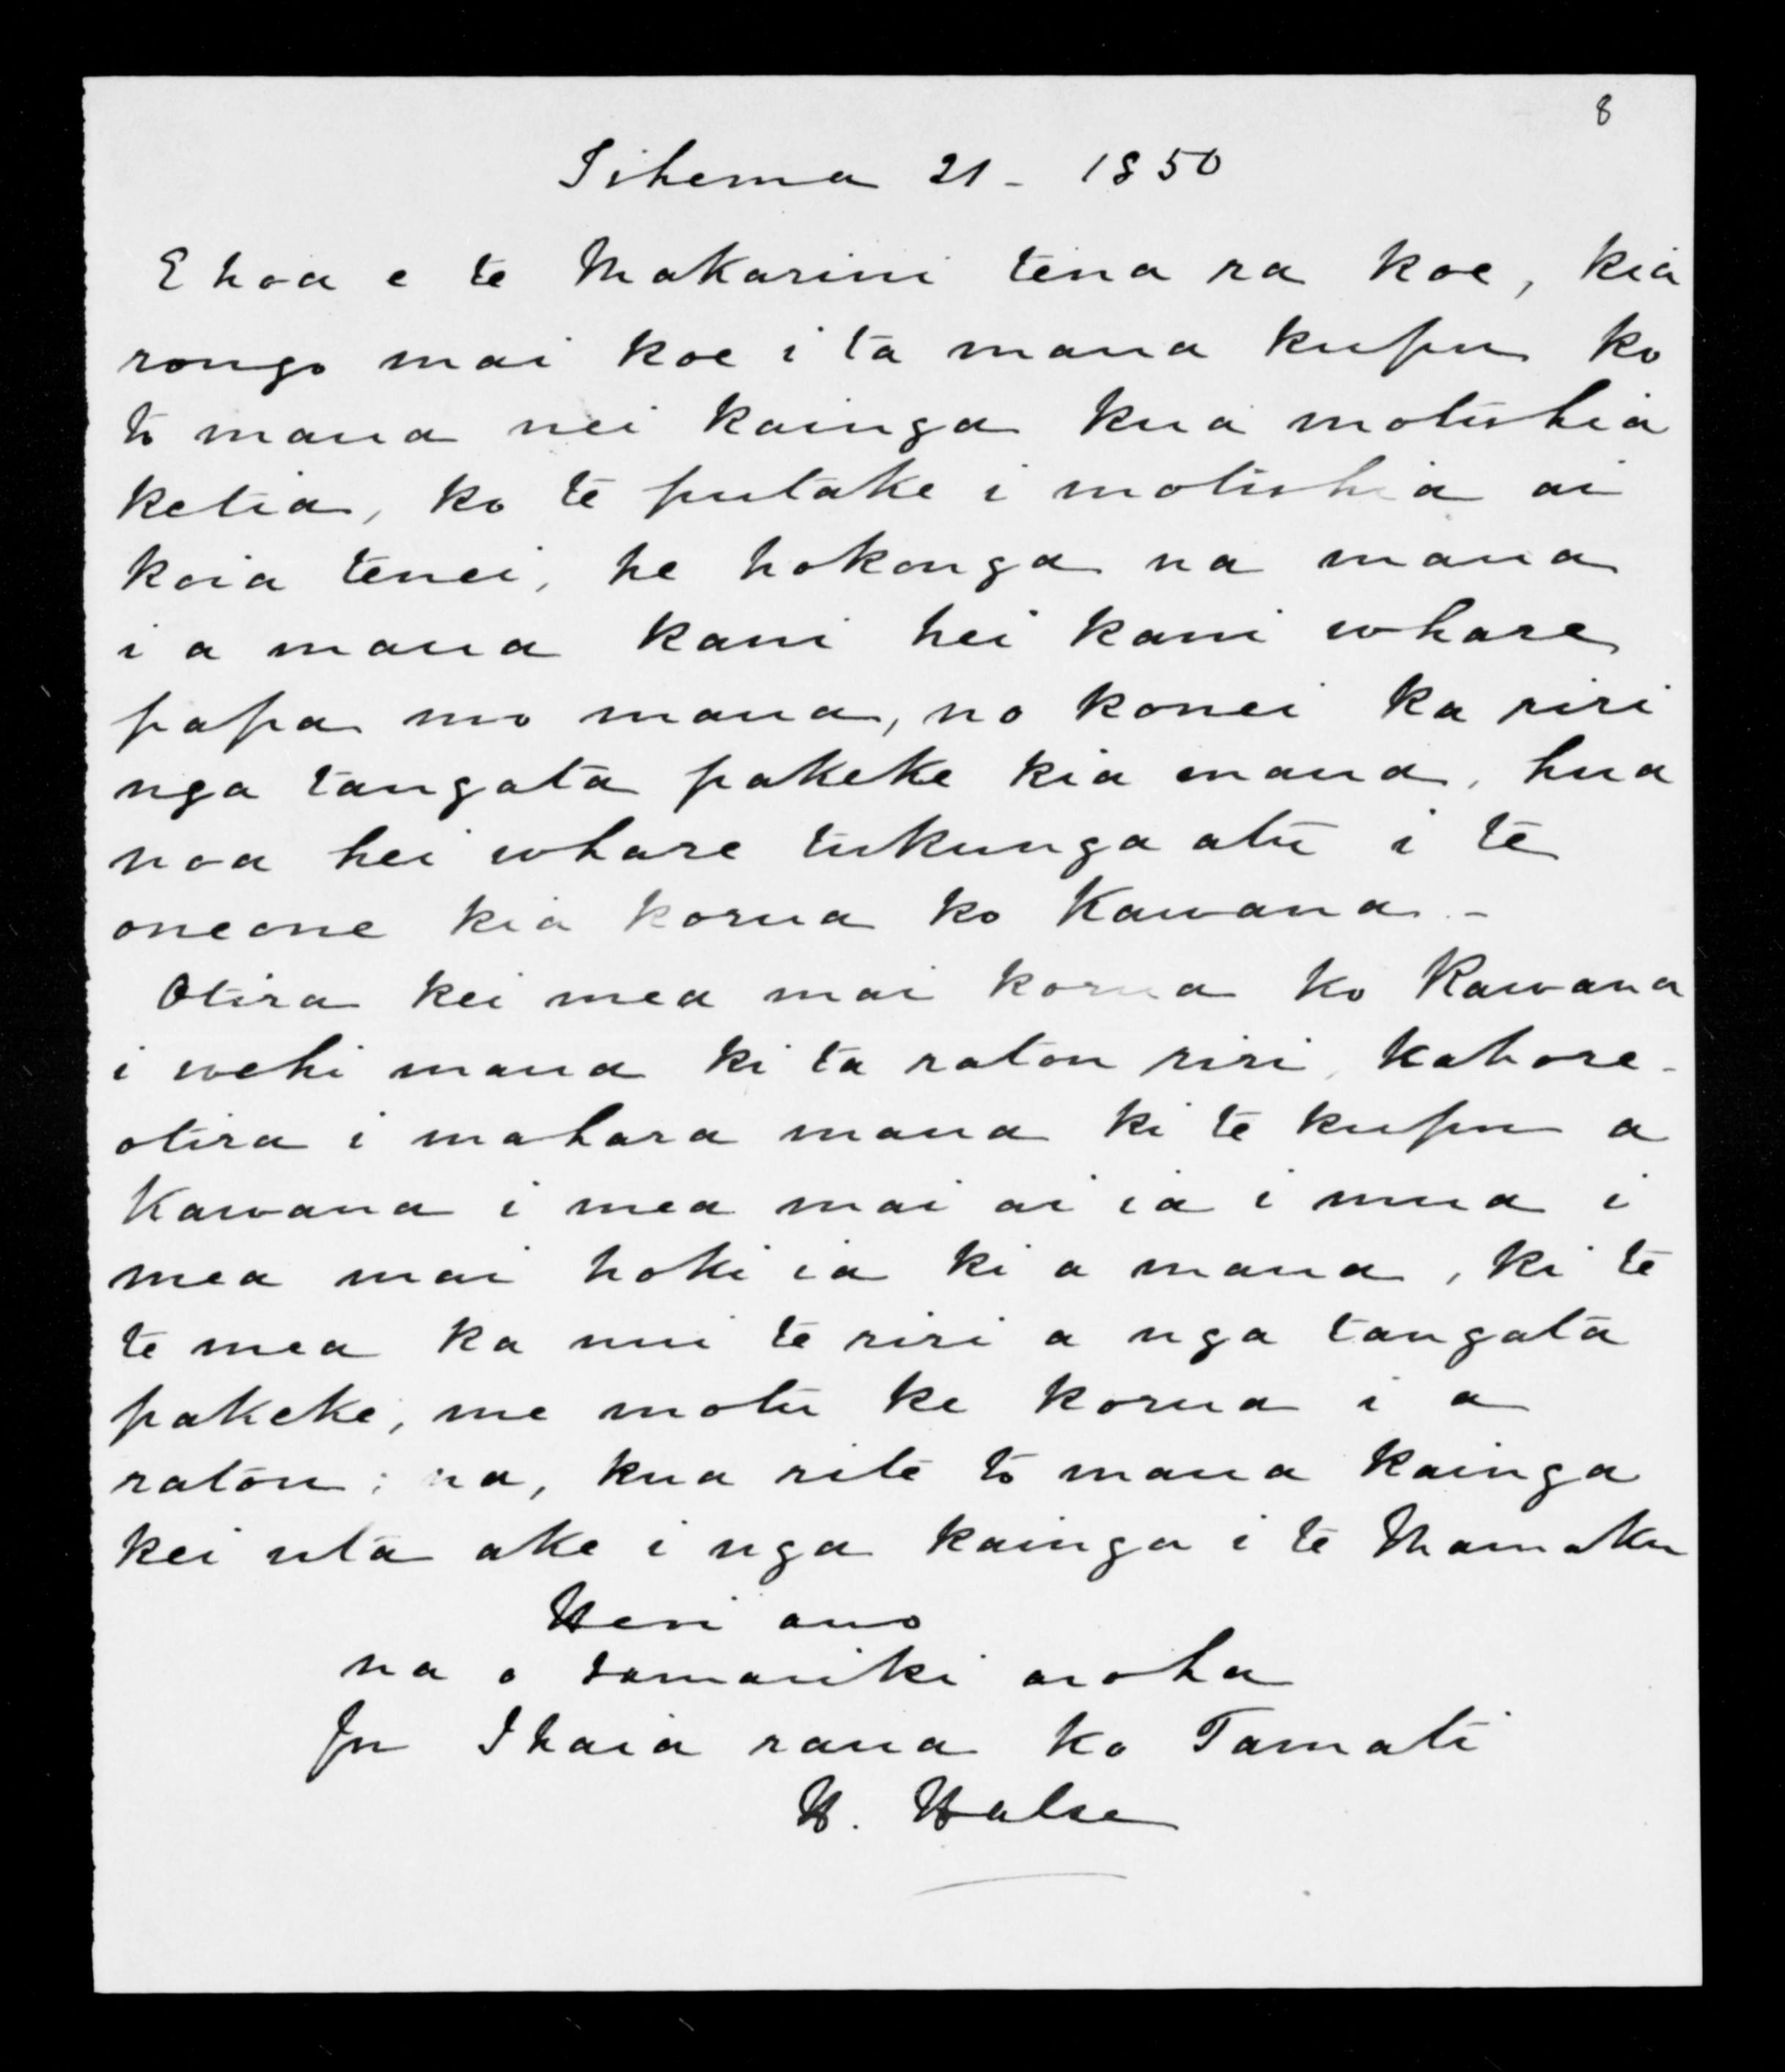 8
Tihema 21 - 1850
E hoa e te Makarini tena ra koe, kia
rongo mai koe i ta maua kupu ko
to maua nei kainga kua motuhia
ketia, ko te putake i motuhia ai
koia tenei, he hokonga na maua
i a maua kani hei kani whare
papa mo maua, no konei ka riri
nga tangata pakeke kia maua, hua
noa hei whare tukunga atu i te
oneone kia korua ko Kawana -
Otira kei mea mai korua ko Kawana
i wehi maua ki ta ratou riri, kahore -
otira i mahara maua ki te kupu a
Kawana i mea mai ai ia i mua i
mea mai hoki ia ki a maua, ki te
te mea ka nui te riri a nga tangata
pakeke, me motu ke korua i a
ratou; na, kua rite to maua kainga
kei uta ake i nga kainga i te Mamaku
Heri ano
na o tamariki aroha
Ihaia raua ko Tamati
H. Halse